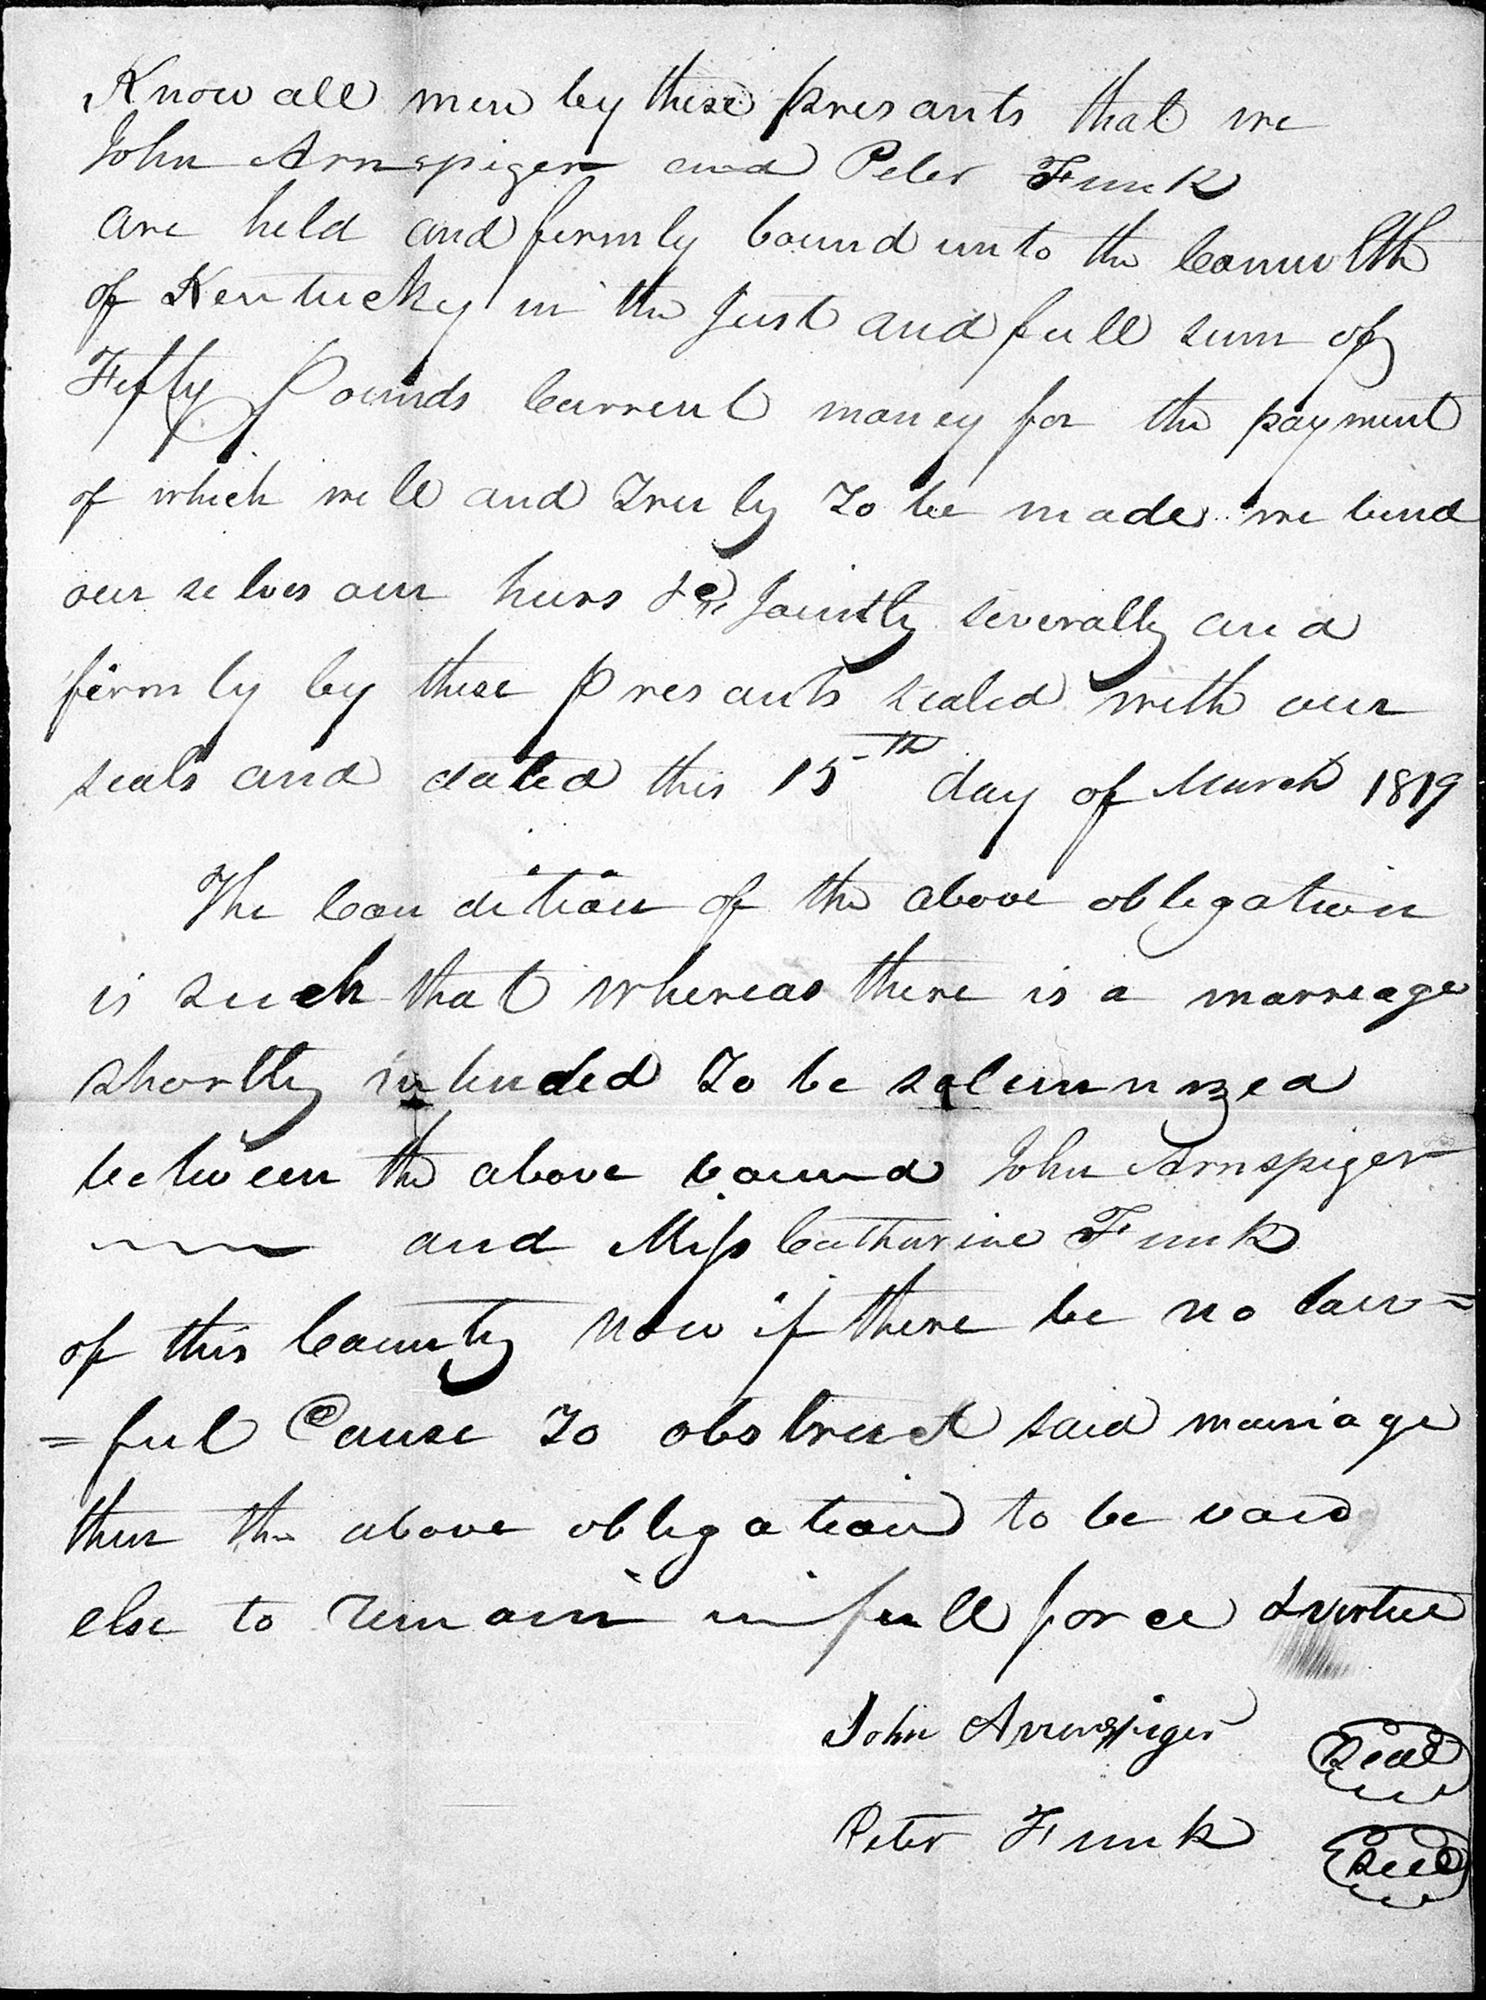 Know all men by these presants that we
John Arnspiger and Peter Funk
are held and firmly bound unto the Comwlth
of Kentucky in the Just and full sum of
Fifty Pounds Current money for the payment
of which well and Truly To be made we bind
our selves our heirs &c Jointly severally and
firmly by these Presants sealed with our
seals and dated this 15th day of March 1819
The Condition of the above obligation
is such that whereas there is a marreage
shortly intended To be solemnized
between the above bound John Arnspiger
and Miss Catharine Funk
of this County now if there be no law=
=ful Cause To obstruct said marriage
then the above obligation to be void
else to remain in full force & virtue
John Arnspiger Seal
Peter Funk Seal